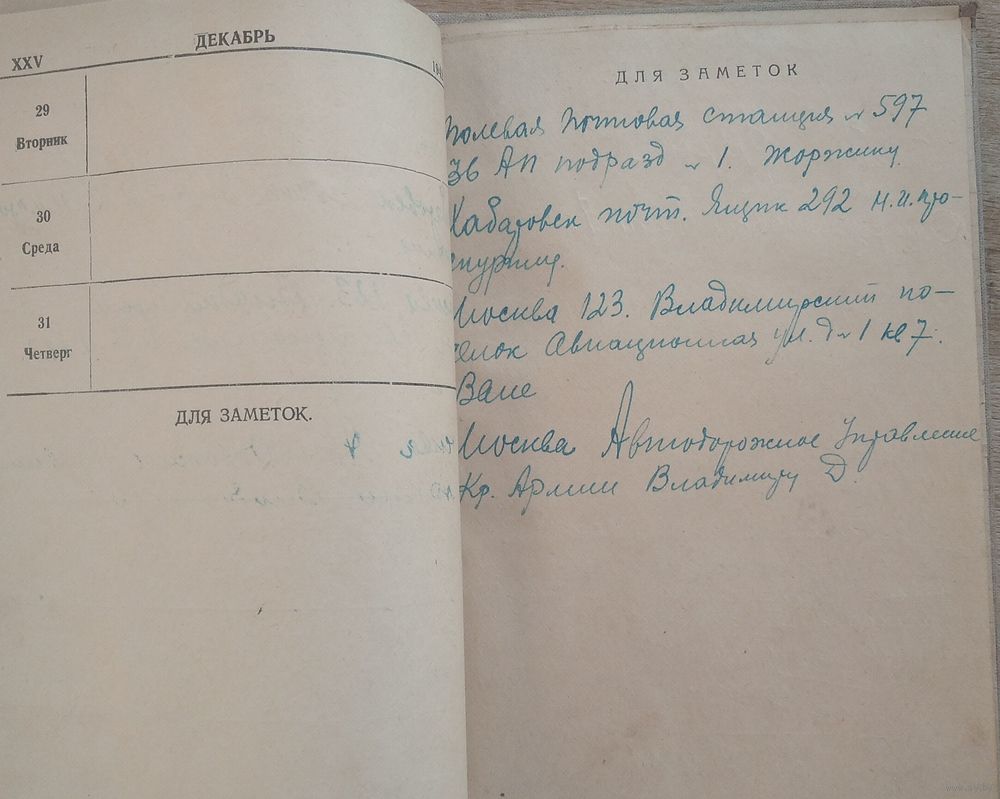 XXV ДЕКАБРЬ 194
29
Вторник
30
Среда
31
Четверг
ДЛЯ ЗАМЕТОК.
ДЛЯ ЗАМЕТОК
Полевая Почтовая станция № 597
36 АП подразд № 1. Жоржику.
Хабаровск почт. Ящик 292 Н.И. Про-
скурину.
Москва 123. Владимирский по-
селок Авиационная ул. д № 1 кв 7.
Ване
Москва Автодорожное Управление
Кр. Армии Владимиру Д.